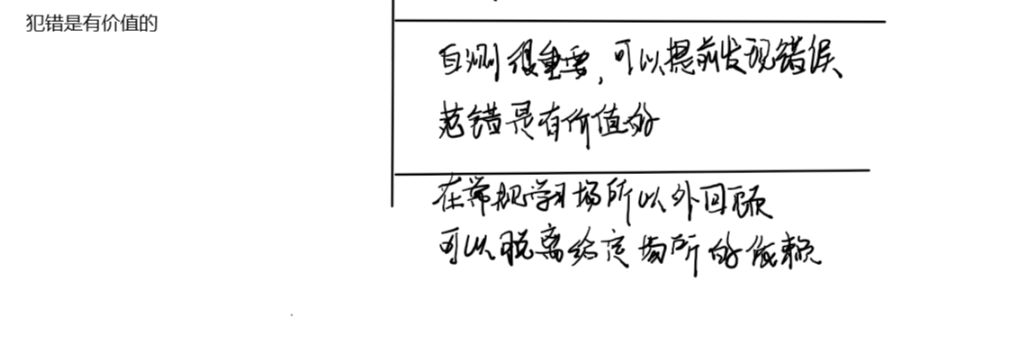 犯错是有价值的
自测很重要，可以提前发现错误、
范错是有价值的
在常规学习场所以外回顾
可以脱离给定场所的依赖